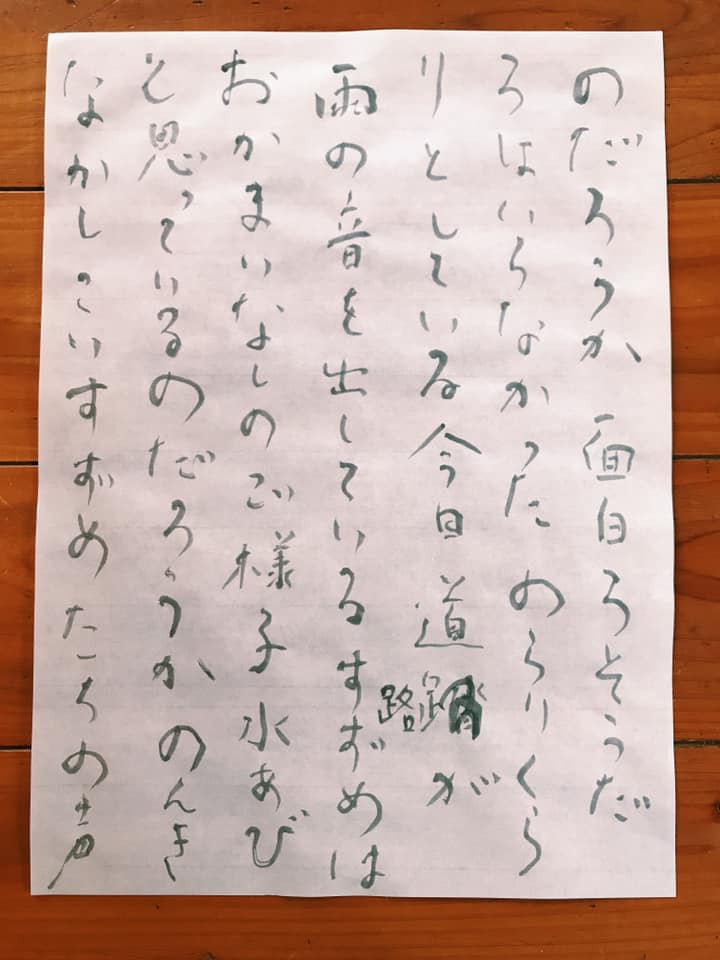 のだろうか 面白ろそうだ
ろはいらなかった のらりくら
りとしている今日道路が
雨の音を出しているすずめは
おかまいなしのご様子 水あび
と思っているのだろうか のんき
なかしこいすずめたちの声